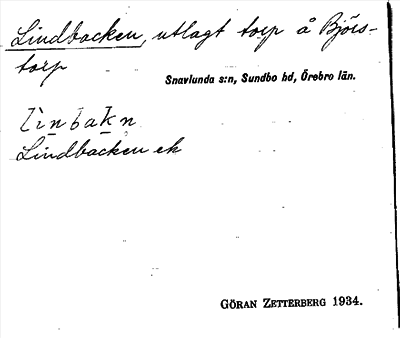 Lindbacken, utlagt torp å Björs-
torp
Snavlunda s:n, Sundbo hd, Örebro län.
lìnbakn
Lindbacken ek
GÖRAN ZETTERBERG 1934.